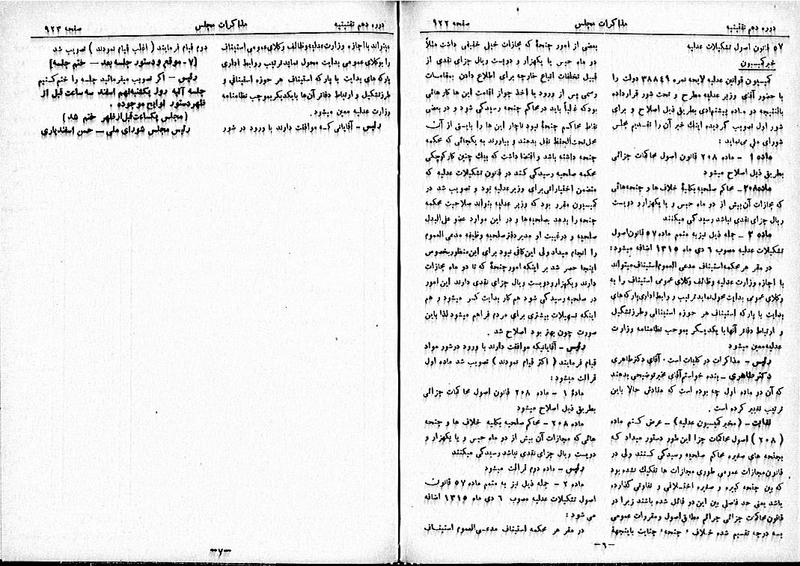 دوره دهم تقنینیه
مذاکرات مجلس
صفحه ۹۲۲
۵۷ قانون اصول تشکیلات عدلیه
خبر کمیسیون
کمیسیون قوانین عدلیه لایحه نمره ۳۸۸۴۹ دولت را
با حضور آقای وزیر عدلیه مطرح و تحت شور قرارداده
بالنتیجه دو ماده پیشنهادی بطریق ذیل اصلاح و برای
شور اول تصویب گردیده اینک خبر آن را تقدیم مجلس
شورای ملی مینماید:
ماده ۱ - ماده ۲۰۸ قانون اصول محاکمات جزائی
بطریق ذیل اصلاح میشود
ماده ۲۰۸ - محاکم صلحیه بکلیه خلاف ها و جنحه هائی
که مجازات آن بیش از دو ماه حبس و یا یکهزار و دویست
ریال جزای نقدی نباشد رسیدگی میکنند
ماده ۲ - جمله ذیل نیز به متمم ماده ۵۷ قانون اصول
تشکیلات عدلیه مصوب ۶ دی ماه ۱۳۱۵ اضافه میشود:
در مقر هر محکمه استیناف مدعی العموم استیناف میتواند
با اجازه وزارت عدلیه وظائف وکلای عمومی استیناف را به
وکلای عمومی بدایت محول نماید ترتیب و روابط اداری پارکه های
بدایت با پارکه استیناف هر حوزه استینافی و طرز تشکیل
و ارتباط دفاتر آنها با یکدیگر بموجب نظامنامه وزارت
عدلیه معین میشود
رئیس - مذاکرات در کلیات است. آقای دکتر طاهری
دکتر طاهری - بنده خواستم آقای مخبر توضیحی بدهند
که آن دو ماده اول چه بوده است که مفادش حالا باین
ترتیب تغییر کرده است.
(مخبر کمیسیون عدلیه) - عرض کنم ماده
(۲۰۸) اصول محاکمات جزا این طور دستور میداد که
بجنحه های صغیره محاکم صلحیه رسیدگی کنند ولی در
قانون مجازات عمومی طوری مجازات ها تفکیک نشده بود
که بین جنحه کبیره و صغیره اختلافی و تفاوتی گذارده
باشد یعنی حد فاصلی بین این دو قائل شده باشند زیرا در
قانون محاکمات جزائی جرائم مطابق اصول و مقررات عمومی
بسه درجه تقسیم شده خلاف، جنحه، جنایت باینجهة
بعضی از امور جنحه که مجازات خیلی خفیفی داشت مثلاً
دو ماه حبس یا یکهزار و دویست ریال جزای نقدی از
قبیل تخلفات اتباع خارجه برای اطلاع دادن بمقامات
رسمی پس از ورود یا اخذ جواز اقامت این ها کارهائی
بود که غالباً باید در محاکم جنحه رسیدگی شود و در بعضی
نقاط محاکم جنحه نبود ناچار این ها را بایستی از آن
محل تحت الحفظ نقل بدهند و بیاورند به یکجائی که محکمه
جنحه داشته باشد و اقتضا داشت که بیک چنین کار کوچکی
محکمه صلحیه رسیدگی کند در قانون تشکیلات عدلیه که
متضمن اختیاراتی برای وزیر عدلیه بود و تصویب شد در
کمیسیون مقرر بود که وزیر عدلیه بتواند صلاحیت محکمه
جنحه را بدهد بصلحیه ها و در این موارد عضو علی البدل
صلحیه و در غیبت او مدیر دفتر صلحیه وظیفه مدعی العموم
را انجام میداد ولی این کافی نبود برای این منظور بخصوص
اینجا حصر شد بر اینکه امور جنحه که تا دو ماه مجازات
دارند و یکهزار و دویست ریال جزای نقدی دارند این امور
در صلحیه رسیدگی شود هم کار بدایت کسر میشود و هم
اینکه تسهیلات بیشتری برای مردم فراهم میشود لذا باین
صورت چون بهتر بود اصلاح شد.
رئیس - آقایانیکه موافقت دارند با ورود در شور مواد
قیام فرمایند (اکثر قیام نمودند) تصویب شد ماده اول
قرائت میشود:
مادهٔ ۱ - ماده ۲۰۸ قانون اصول محاکمات جزائی
بطریق ذیل اصلاح میشود
ماده ۲۰۸ - محاکم صلحیه بکلیه خلاف ها و جنحه
هائی که مجازات آن بیش از دو ماه حبس و یا یکهزار و
دویست ریال جزای نقدی نباشد رسیدگی میکنند
رئیس - ماده دوم قرائت میشود
ماده ۲ - جمله ذیل نیز به متمم ماده ۵۷ قانون
اصول تشکیلات عدلیه مصوب ۶ دی ماه ۱۳۱۵ اضافه
می شود:
در مقر هر محکمه استیناف مدعی العموم استیناف
-۶-
دوره دهم تقنینیه
مذاکرات مجلس
صفحه ۹۲۳
میتواند با اجازه وزارت عدلیه وظائف وکلای عمومی استیناف
را بوکلای عمومی بدایت محول نماید ترتیب روابط اداری
پارکه های بدایت با پارکه استیناف هر حوزه استینافی و
طرز تشکیل و ارتباط دفاتر آن ها با یکدیگر بموجب نظامنامه
وزارت عدلیه معین میشود.
رئیس - آقایانی که موافقت دارند با ورود در شور
دوم قیام فرمایند (اغلب قیام نمودند) تصویب شد
[۷ - موقع و دستور جلسه بعد - ختم جلسه]
رئیس - اگر تصویب میفرمائید جلسه را ختم کنیم
جلسه آتیه روز یکشنبه نهم اسفند سه ساعت قبل از
ظهر دستور لوایح موجوده.
(مجلس یکساعت قبل از ظهر ختم شد)
رئیس مجلس شورای ملی - حسن اسفندیاری
-۷-